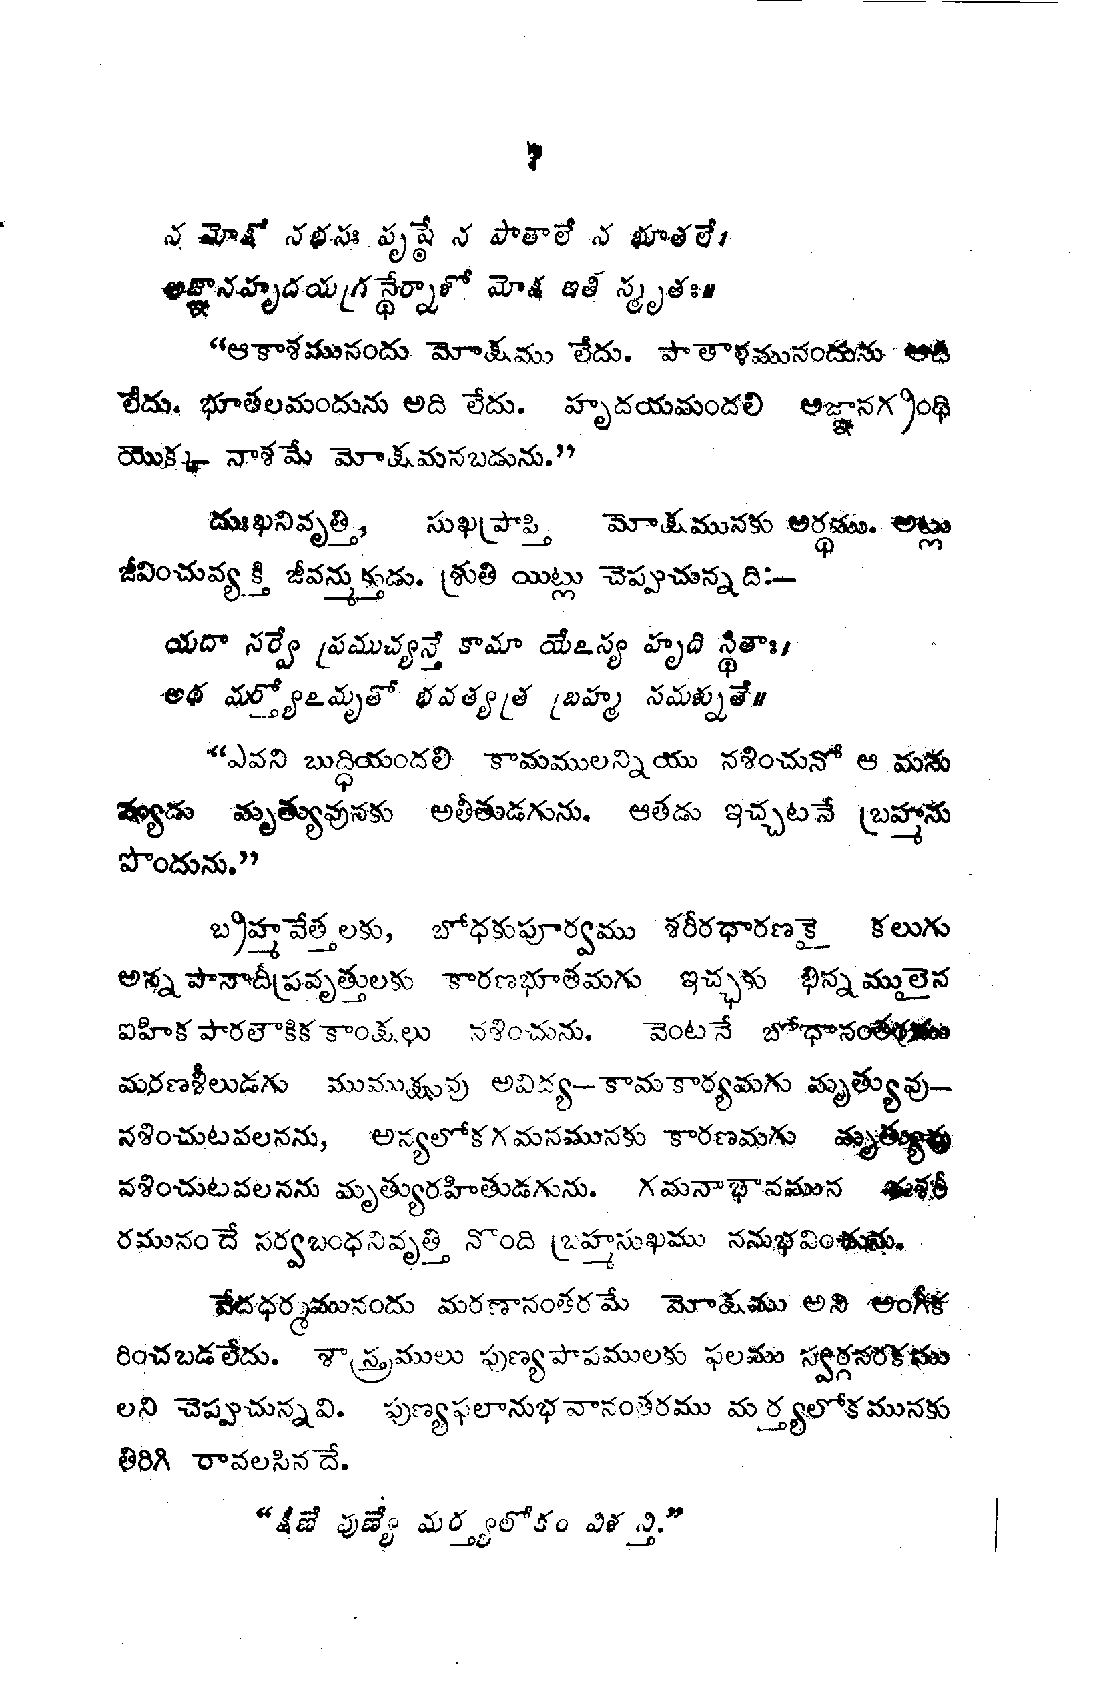 7
న మోక్షో నభసః పృష్ఠే న పాతాలే న భూతలే।
అజ్ఞానహృదయగ్రన్థేర్నాశో మోక్ష ఇతి స్మృతః॥
“ఆకాశమునందు మోక్షము లేదు. పాతాళమునందును అది
లేదు. భూతలమందును అది లేదు. హృదయమందలి అజ్ఞానగ్రంథి
యొక్క నాశమే మోక్షమనబడును.”
దుఃఖనివృత్తి, సుఖప్రాప్తి మోక్షమునకు అర్థము. అట్లు
జీవించువ్యక్తి జీవన్ముక్తుడు. శ్రుతి యిట్లు చెప్పుచున్నది:—
యదా సర్వే ప్రముచ్యన్తే కామా యేఽస్య హృది స్థితాః।
అథ మర్త్యోఽమృతో భవత్యత్ర బ్రహ్మ సమశ్నుతే॥
“ఎవని బుద్ధియందలి కామములన్నియు నశించునో ఆ మను
ష్యుడు మృత్యువునకు అతీతుడగును. ఆతడు ఇచ్చటనే బ్రహ్మను
పొందును.”
బ్రహ్మవేత్తలకు, బోధకుపూర్వము శరీరధారణకై కలుగు
అన్నపానాదిప్రవృత్తులకు కారణభూతమగు ఇచ్ఛకు భిన్నములైన
ఐహికపారలౌకికకాంక్షలు నశించును. వెంటనే బోధానంతరము
మరణశీలుడగు ముముక్షువు అవిద్య—కామకార్యమగు మృత్యువు—
నశించుటవలనను, అన్యలోకగమనమునకు కారణమగు మృత్యువు
వశించుటవలనను మృత్యురహితుడగును. గమనాభావమున ఈశరీ
రమునందే సర్వబంధనివృత్తి నొంది బ్రహ్మసుఖము ననుభవించును.
వేదధర్మమునందు మరణానంతరమే మోక్షము అని అంగీక
రించబడలేదు. శాస్త్రములు పుణ్యపాపములకు ఫలము స్వర్గనరకము
లని చెప్పుచున్నవి. పుణ్యఫలానుభవానంతరము మర్త్యలోకమునకు
తిరిగి రావలసినదే.
“క్షీణే పుణ్యే మర్త్యలోకం విశన్తి.”